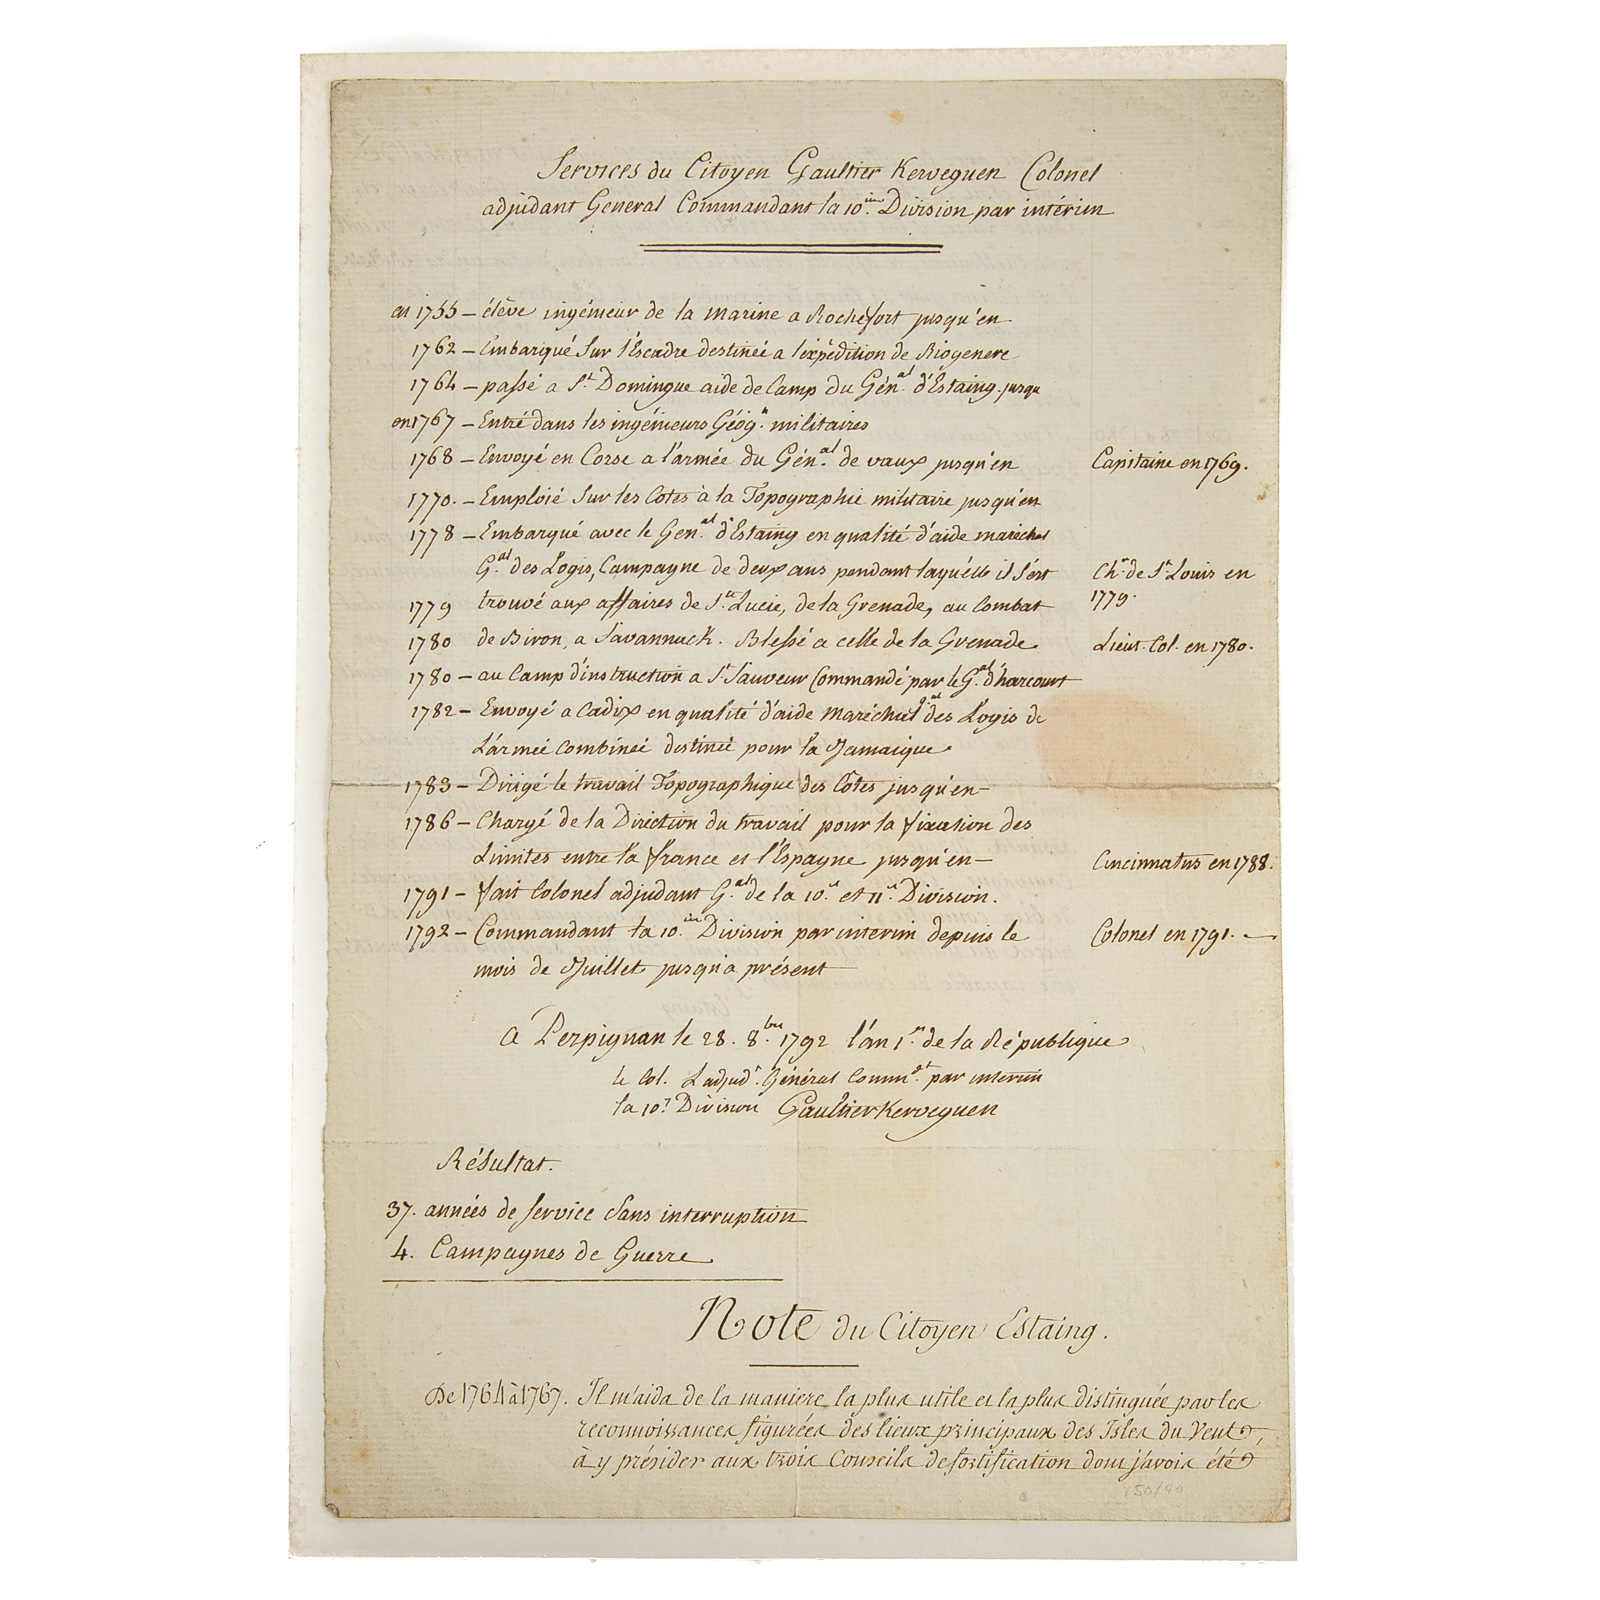 Services du Citoyen Gaultier Kerveguen Colonel
adjudant General Commandant la 10.ieme Division par intérim
en 1755 – élève ingénieur de la marine a Rochefort jusqu'en
1762 – Embarqué Sur l'Escadre destinée a l'expédition de Riogenere
1764 – passé a St. Domingue aide de Camp du Génal. d'Estaing jusqu
en 1767 – Entré dans les ingénieurs Géog.s militaires
1768 – Envoyé en Corse a l'armée du Génal. de vaux jusqu'en
Capitaine en 1769.
1770. – Emploié Sur les Cotes à la Topographie militaire jusqu'en
1778 – Embarqué avec le Genal. d'Estaing en qualité d'aide maréchal
Gal. des Logis, Campagne de deux ans pendant laquélle il S'ést
Chr. de St. Louis en
1779.
1779 trouvé aux affaires de Ste. Lucie, de la Grenade, au Combat
1780 de Biron, a Savannuck. Blessé a celle de la Grenade
Lieut. Col. en 1780.
1780 – au Camp d'instruction a St. Sauveur Commandé par le Gal. d'harcourt
1782 – Envoyé a Cadix en qualité d'aide Maréchal gal. des Logis de
L'armée Combinée destinée pour la Jamaique
1783 – Dirigé le travail Topographique des Côtes jusqu'en –
1786 – Chargé de la Direction du travail pour la fixation des
Limites entre la france et l'Espagne jusqu'en –
Cincinnatus en 1788.
1791 – fait Colonel adjudant Gal. de la 10.e et 11.e Division.
1792 – Commandant la 10.ieme Division par interim depuis le
Colonel en 1791. –
mois de Juillet jusqu'a présent
a Perpignan le 28. 8.bre 1792 l'an 1.er de la République
le Col. L'adjudt. Général Commdt. par interim
la 10.e Division GaultierKerveguen
Résultat.
37. années de service Sans interruption
4. Campagnes de Guerre
Note du Citoyen Estaing.
De 1764 à 1767. Il m'aida de la maniere la plus utile et la plus distinguée par les
reconnoissances figurées des lieux principaux des Isles du Vent,
à y présider aux trois Conseils de fortification dont j'avois été